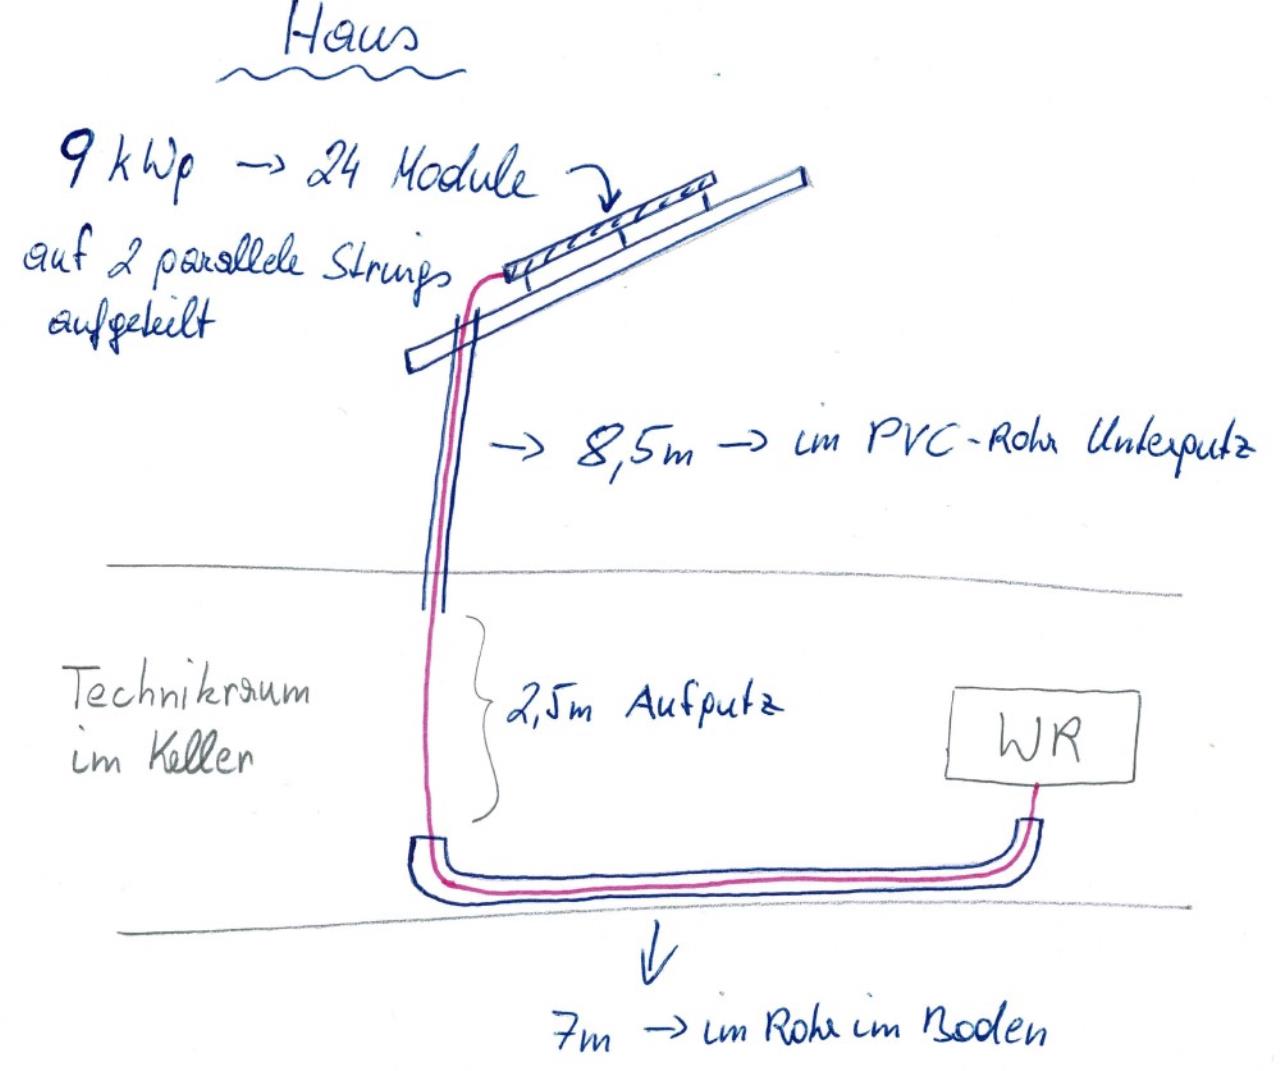 Haus
9 kWp → 24 Module
auf 2 parallele Strings
aufgeteilt
→ 8,5m → im PVC-Rohr Unterputz
Technikraum
im Keller
2,5m Aufputz
WR
7m → im Rohr im Boden